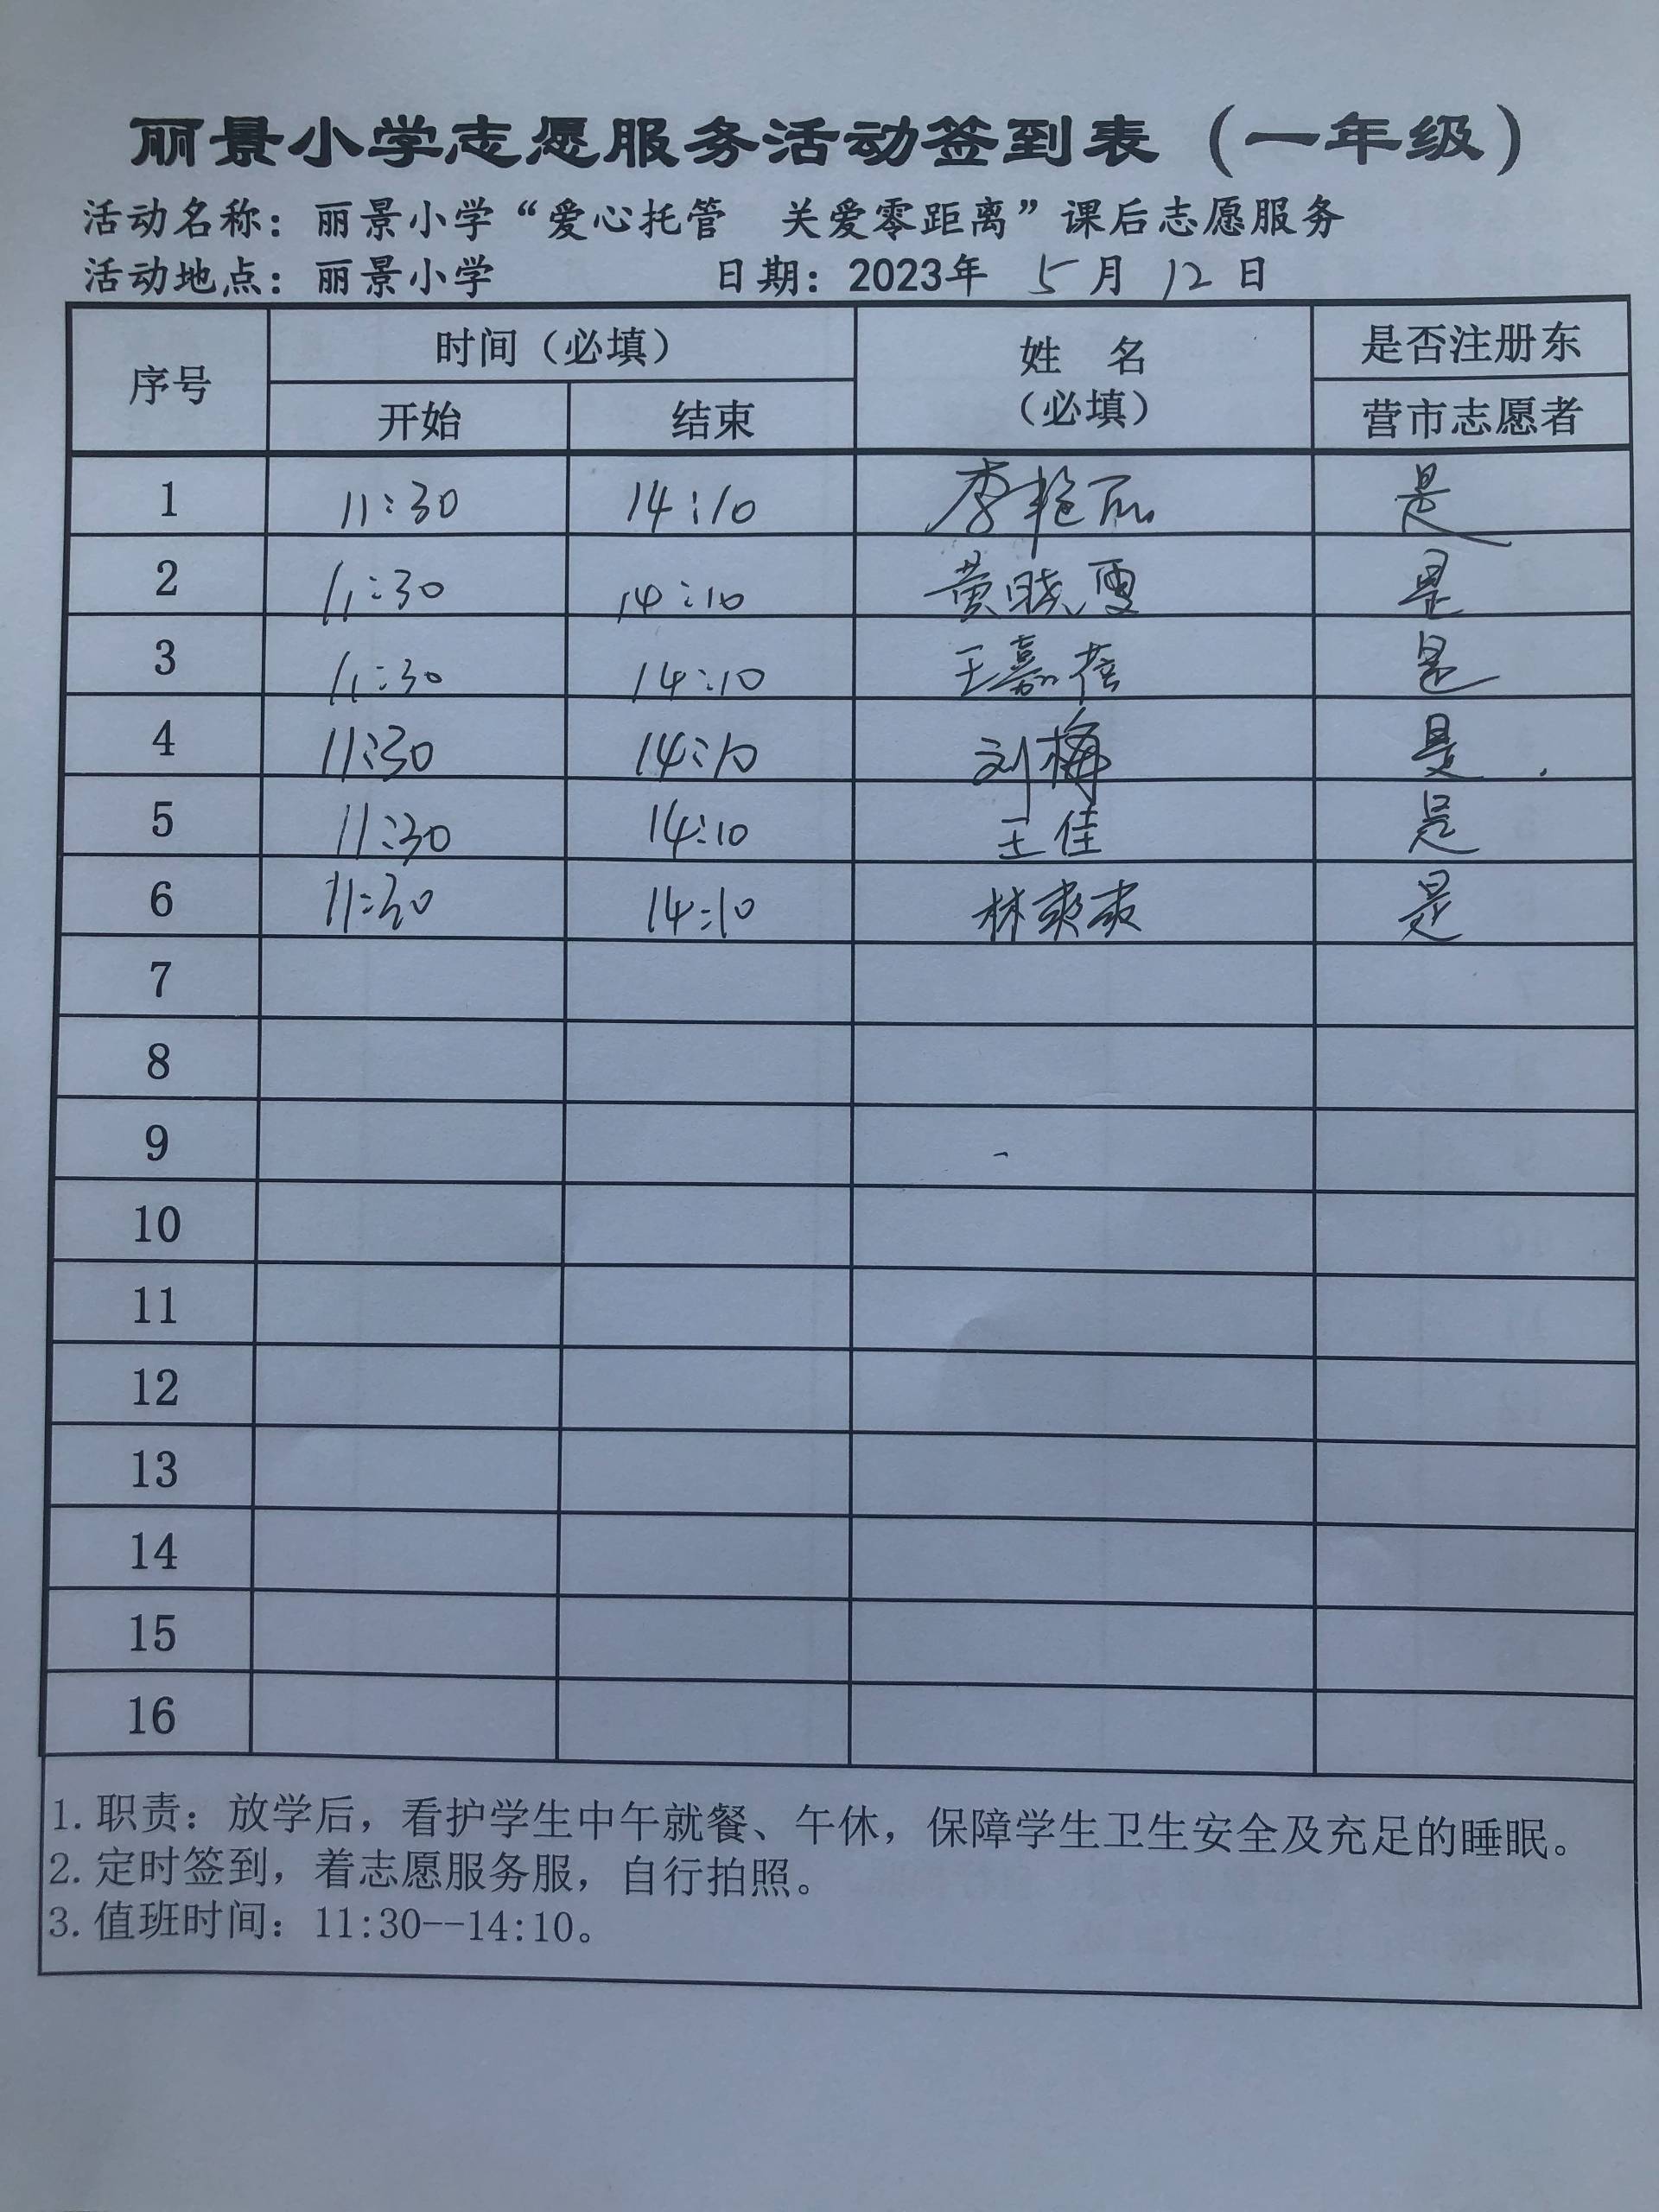 丽景小学志愿服务活动签到表（一年级）
活动名称：丽景小学“爱心托管 关爱零距离”课后志愿服务
活动地点：丽景小学 日期：2023年 5月 12日
序号 时间（必填） 姓 名（必填） 是否注册东营市志愿者
开始 结束
1 11:30 14:10 李艳丽 是
2 11:30 14:10 黄晓雯 是
3 11:30 14:10 王嘉蓓 是
4 11:30 14:10 刘梅 是
5 11:30 14:10 王佳 是
6 11:30 14:10 林爽爽 是
7
8
9
10
11
12
13
14
15
16
1.职责：放学后，看护学生中午就餐、午休，保障学生卫生安全及充足的睡眠。
2.定时签到，着志愿服务服，自行拍照。
3.值班时间：11:30--14:10。